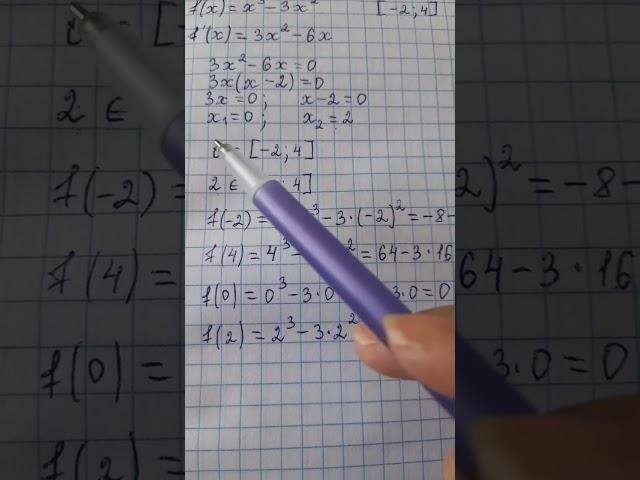 f(x) = x³ − 3x² [−2; 4]
f'(x) = 3x² − 6x
3x² − 6x = 0
3x(x − 2) = 0
3x = 0; x − 2 = 0
x₁ = 0; x₂ = 2
[−2; 4]
2 ∈ ; 4]
f(−2) = ³ − 3·(−2)² = −8 −
f(4) = 4³ − ² = 64 − 3·16
f(0) = 0³ − 3·0 3·0 = 0
f(2) = 2³ − 3·2²